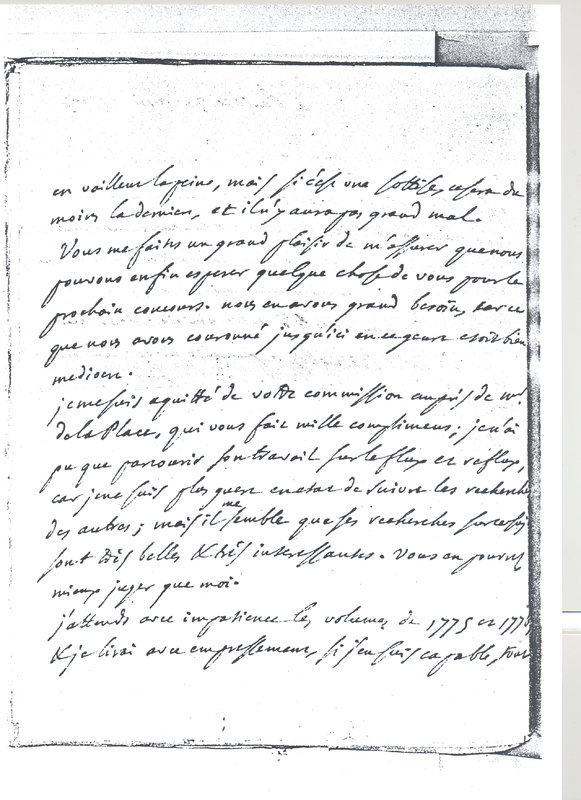 en vaillent la peine, mais si c'est une sottise, ce sera du
moins la derniere, et il n'y aura pas grand mal.
Vous me faites un grand plaisir de m'assurer que nous
pouvons enfin esperer quelque chose de vous pour le
prochain concours. nous en avons grand besoin, car ce
que nous avons couronné jusqu'ici en ce genre etoit bien
mediocre.
je me suis aquitté de votre commission auprès de mr.
de la Place, qui vous fait mille complimens; je n'ai
pu que parcourir son travail sur le flux et reflux,
car je ne suis plus guere en etat de suivre les recherches
des autres; mais il me semble que ses recherches sur ce sujet
sont très belles & très interessantes. Vous en pourrez
mieux juger que moi.
j'attends avec impatience les volumes de 1775 et 1776,
& je lirai avec empressement, si j'en suis capable, tout